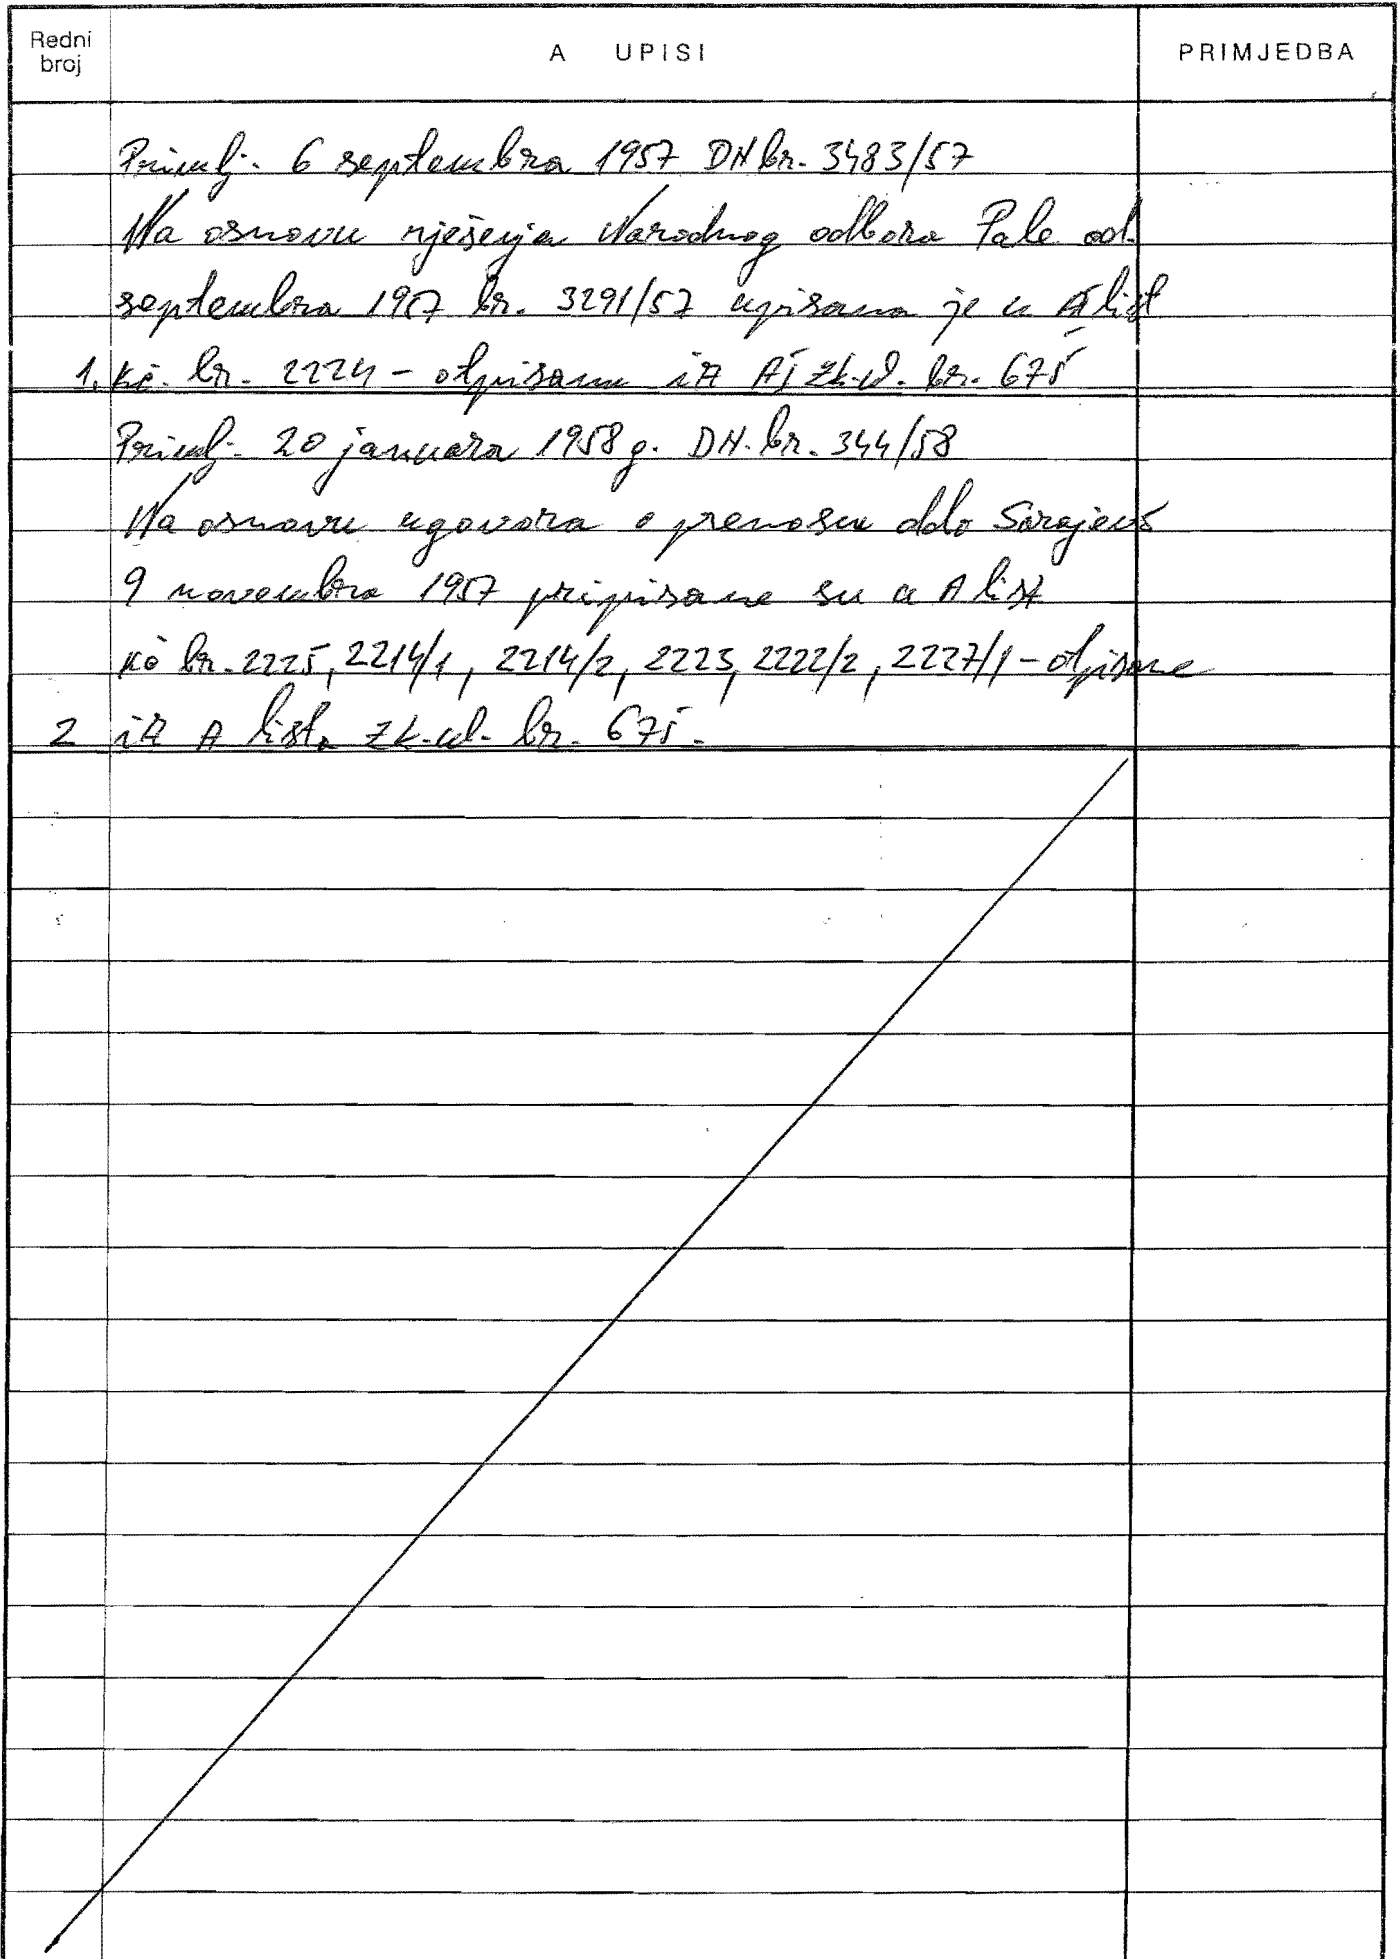 Redni
broj
A UPISI
PRIMJEDBA
Primlj. 6 septembra 1957 DN br. 3483/57
Na osnovu rješenja Narodnog odbora Pale od
septembra 1957 br. 3291/57 upisana je u A list
1. kč. br. 2224 - otpisana iz A, zk. ul. br. 675
Primlj. 20 januara 1958 g. DN. br. 344/58
Na osnovu ugovora o prenosu ddo Sarajevo
9 novembra 1957 pripisane su u A list
kč br. 2225, 2214/1, 2214/2, 2223, 2222/2, 2227/1 - otpisane
2 iz A lista zk. ul. br. 675.